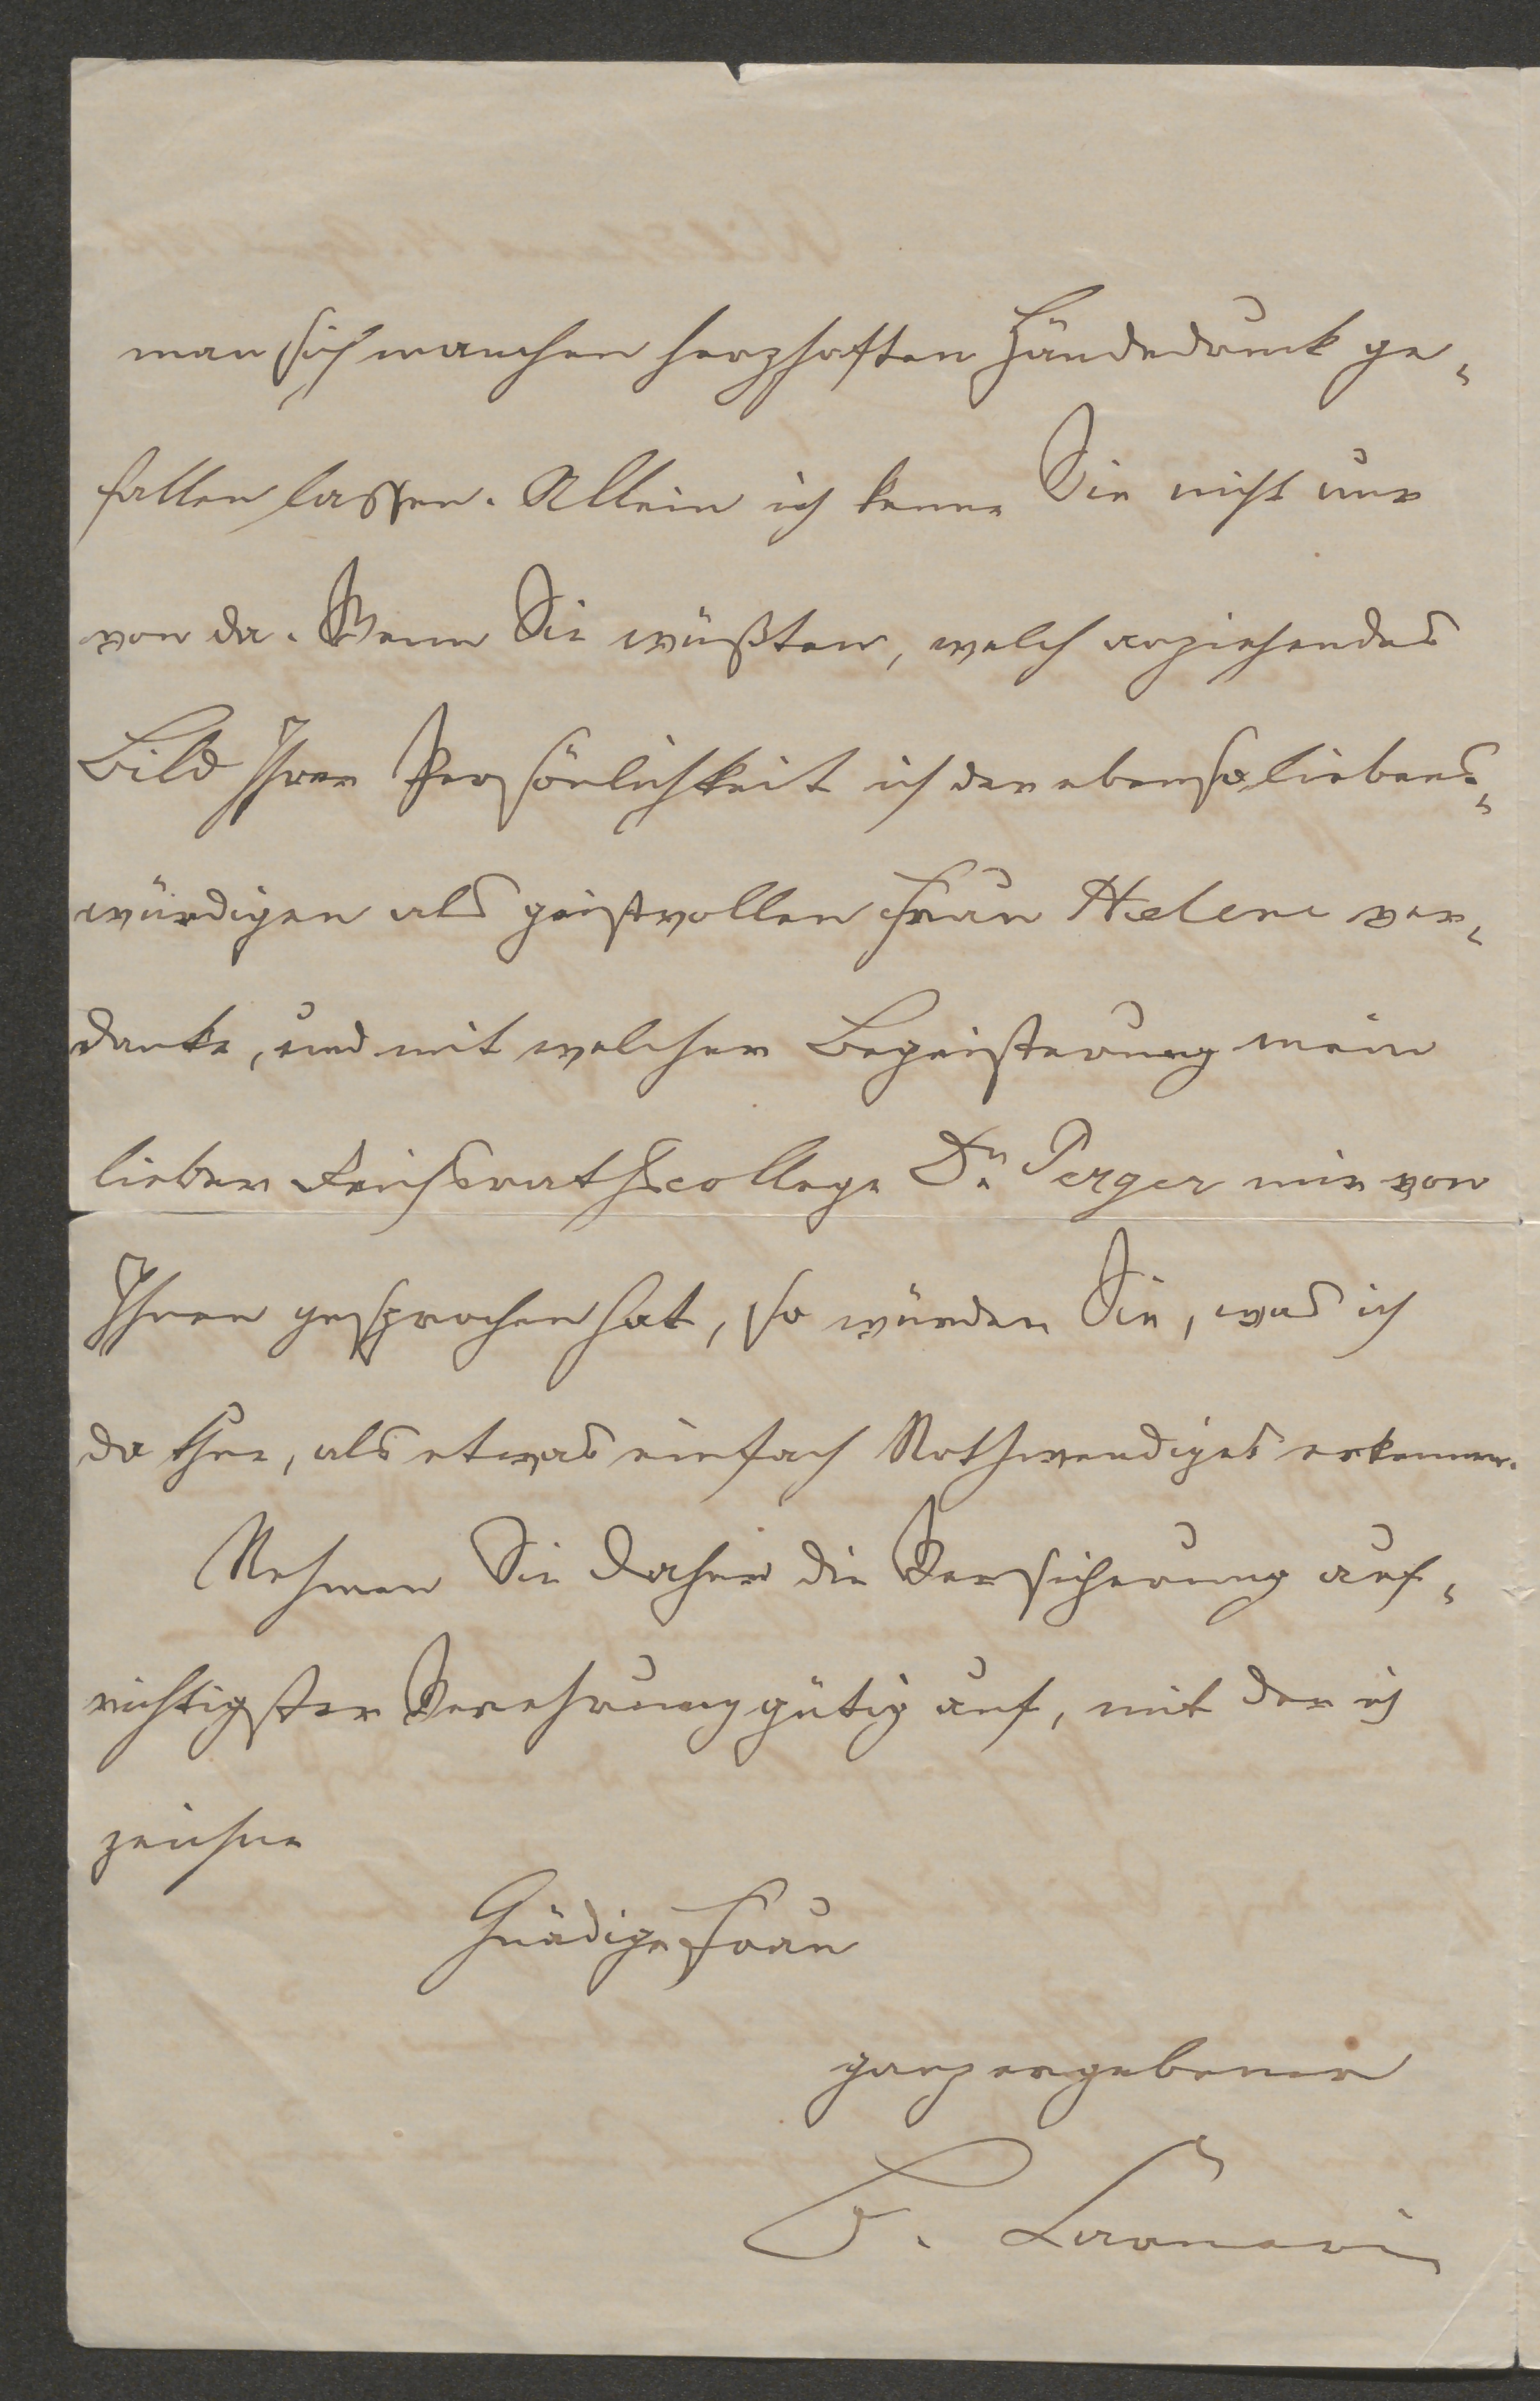 man sich manchen herzhaften Händedruck ge-
fallen lassen. Allein ich kenne Sie nicht nur
von da. Wenn Sie wüßten, welch anziehendes
Bild Ihrer Persönlichkeit ich der ebenso liebens-
würdigen als geistvollen Frau Helene ver-
danke, und mit welcher Begeisterung mein
lieber Reichsrathscollege Dr. Perger mir von
Ihnen gesprochen hat, so würden Sie, was ich
da thue, als etwas einfach Nothwendiges erkennen.
Nehmen Sie daher die Versicherung auf-
richtigster Verehrung gütig auf, mit der ich
zeichne
Gnädige Frau
ganz ergebener
B. Carneri